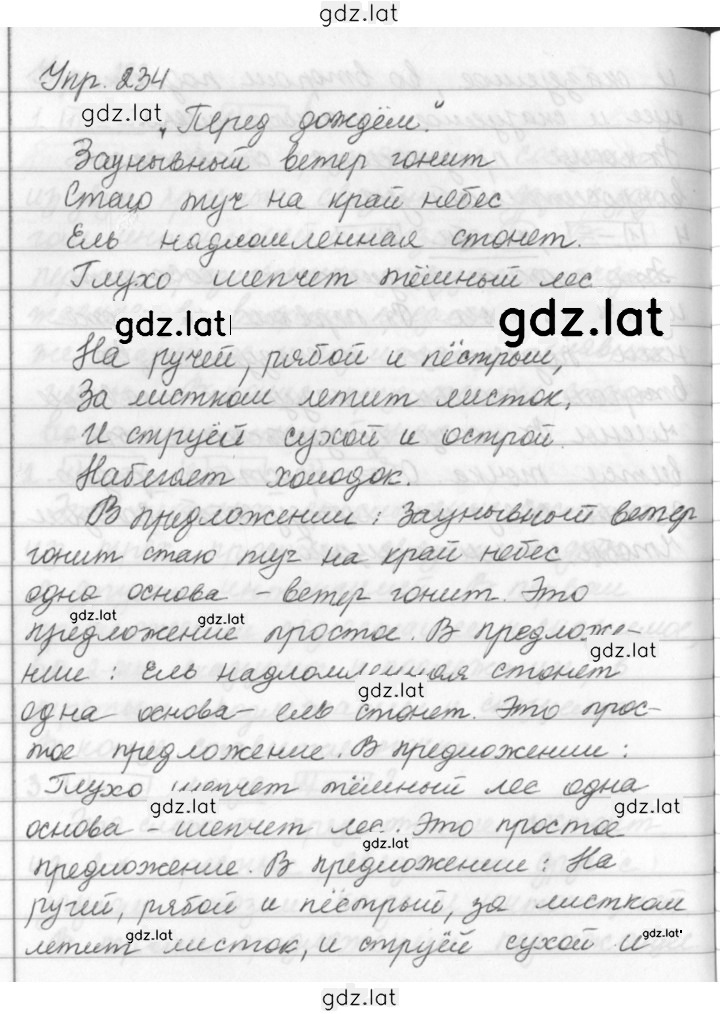 gdz.lat
Упр. 234
gdz.lat
„Перед дождём".
Заунывный ветер гонит
Стаю туч на край небес
Ель надломленная стонет.
Глухо шепчет тёмный лес
gdz.lat gdz.lat
На ручей, рябой и пёстрый,
За листком летит листок,
И струёй сухой и острой
Набегает холодок.
В предложении: Заунывный ветер
гонит стаю туч на край небес
одна основа - ветер гонит. Это
gdz.lat gdz.lat
предложение простое. В предложе-
gdz.lat
нии: Ель надломленная стонет
gdz.lat
одна основа - ель стонет. Это прос-
тое предложение. В предложении:
Глухо шепчет тёмный лес одна
gdz.lat gdz.lat
основа - шепчет лес. Это простое
gdz.lat
предложение. В предложении: На
ручей, рябой и пёстрый, за листком
летит листок, и струёй сухой и
gdz.lat gdz.lat gdz.lat
gdz.lat